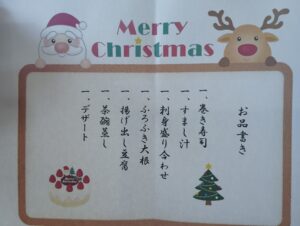 Merry
Christmas
お品書き
一、巻き寿司
一、すまし汁
一、刺身盛り合わせ
一、ふろふき大根
一、揚げ出し豆腐
一、茶碗蒸し
一、デザート